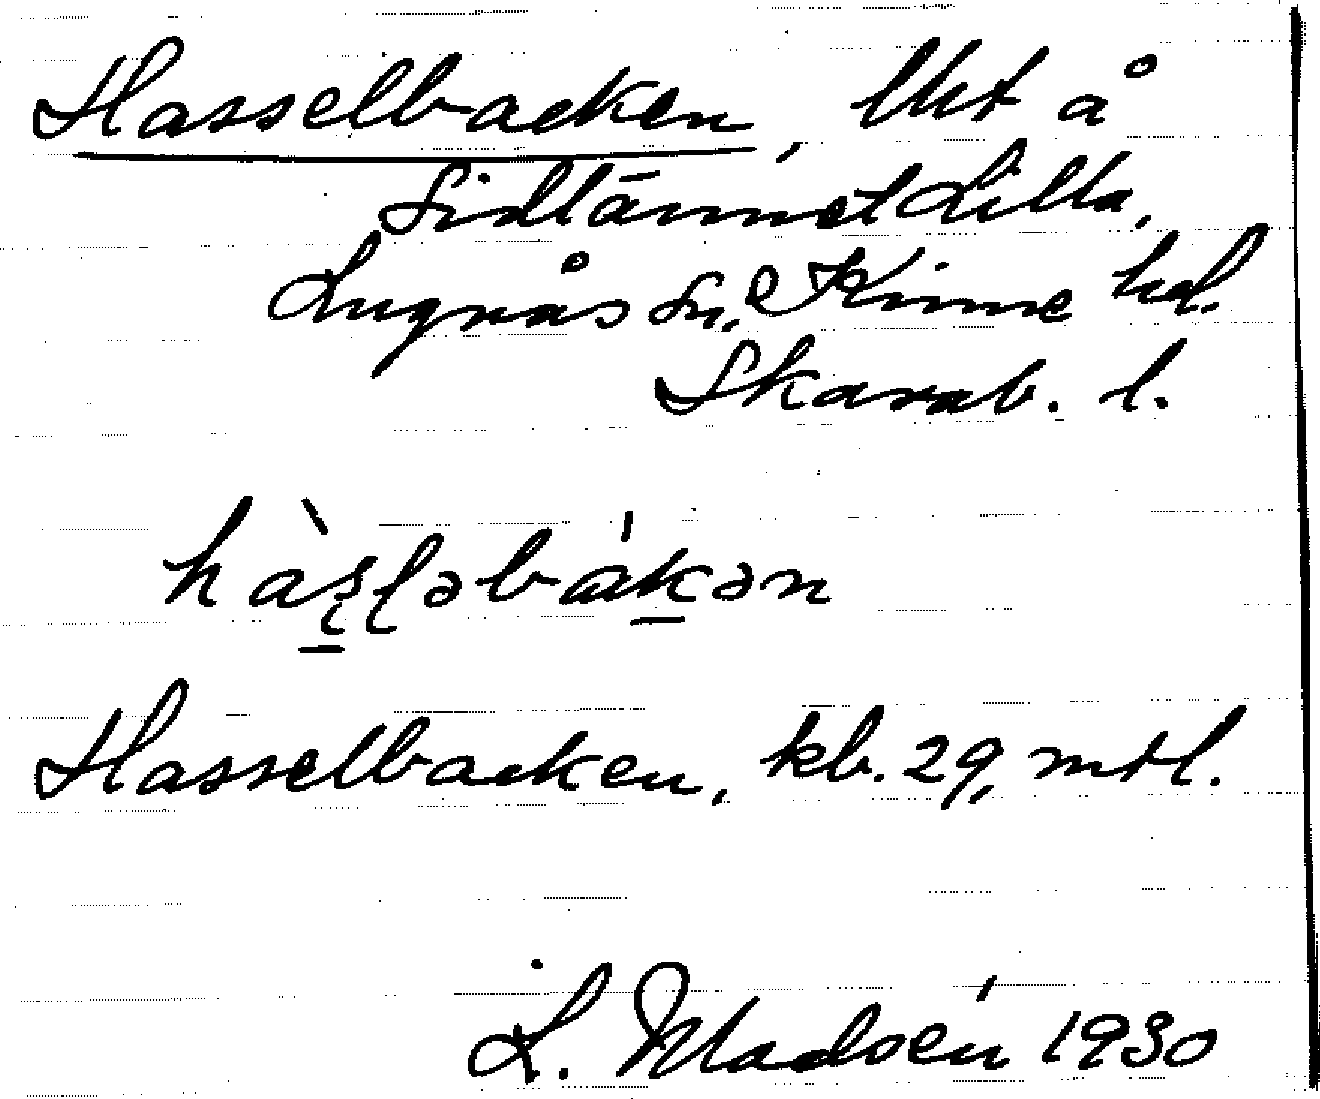 Hasselbacken, lht å
Sidlämnet Lilla,
Lugnås sn, Kinne hd.
Skarab. l.
hàʂɭəbákən
Hasselbacken, kb. 29, mtl.
L. Madsén 1930